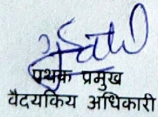 पथक प्रमुख
वैदयकिय अधिकारी